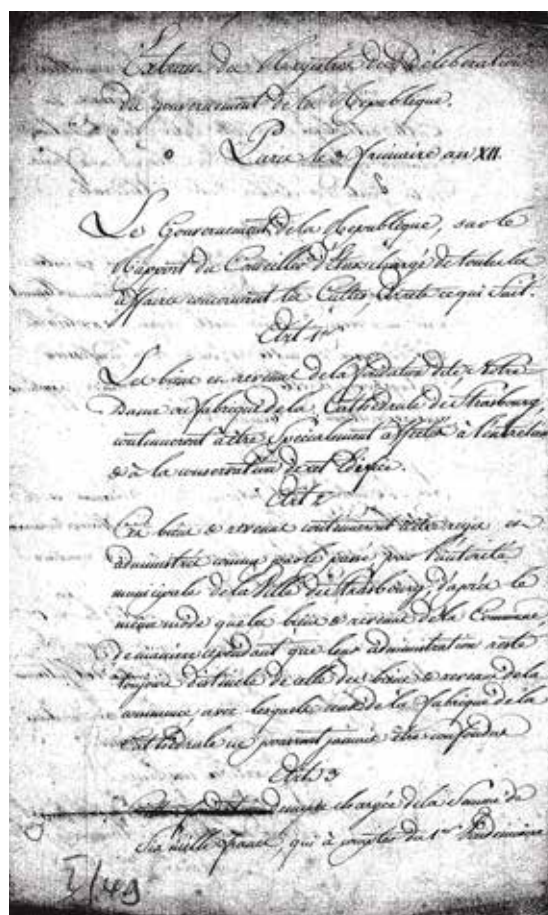 Extrait des Registres des Délibérations
du gouvernement de la République.
Paris le 3 frimaire an XII.
Le Gouvernement de la République, sur le
Rapport du Conseiller d'État chargé de toutes les
affaires concernant les Cultes, Arrête ce qui Suit.
Art 1er
Les biens et revenus de la fondation dite Notre
Dame ou fabrique de la Cathédrale de Strasbourg,
continueront à être Spécialement affectés à l'entretien
& à la conservation de cet Edifice.
Art 2
Ces biens & revenus continueront d'être régis et
administrés comme par le passé par l'autorité
municipale de la Ville de Strasbourg, d'après le
même mode que les biens & revenus de la Commune,
de manière cependant que leur administration reste
toujours distincte de celle des biens & revenus de la
commune, avec lesquels ceux de la fabrique de la
Cathédrale ne pourront jamais être confondus
Art 3
demeure chargée de la Somme de
Six mille francs, qui à compter du 1er Vendémiaire
I/49